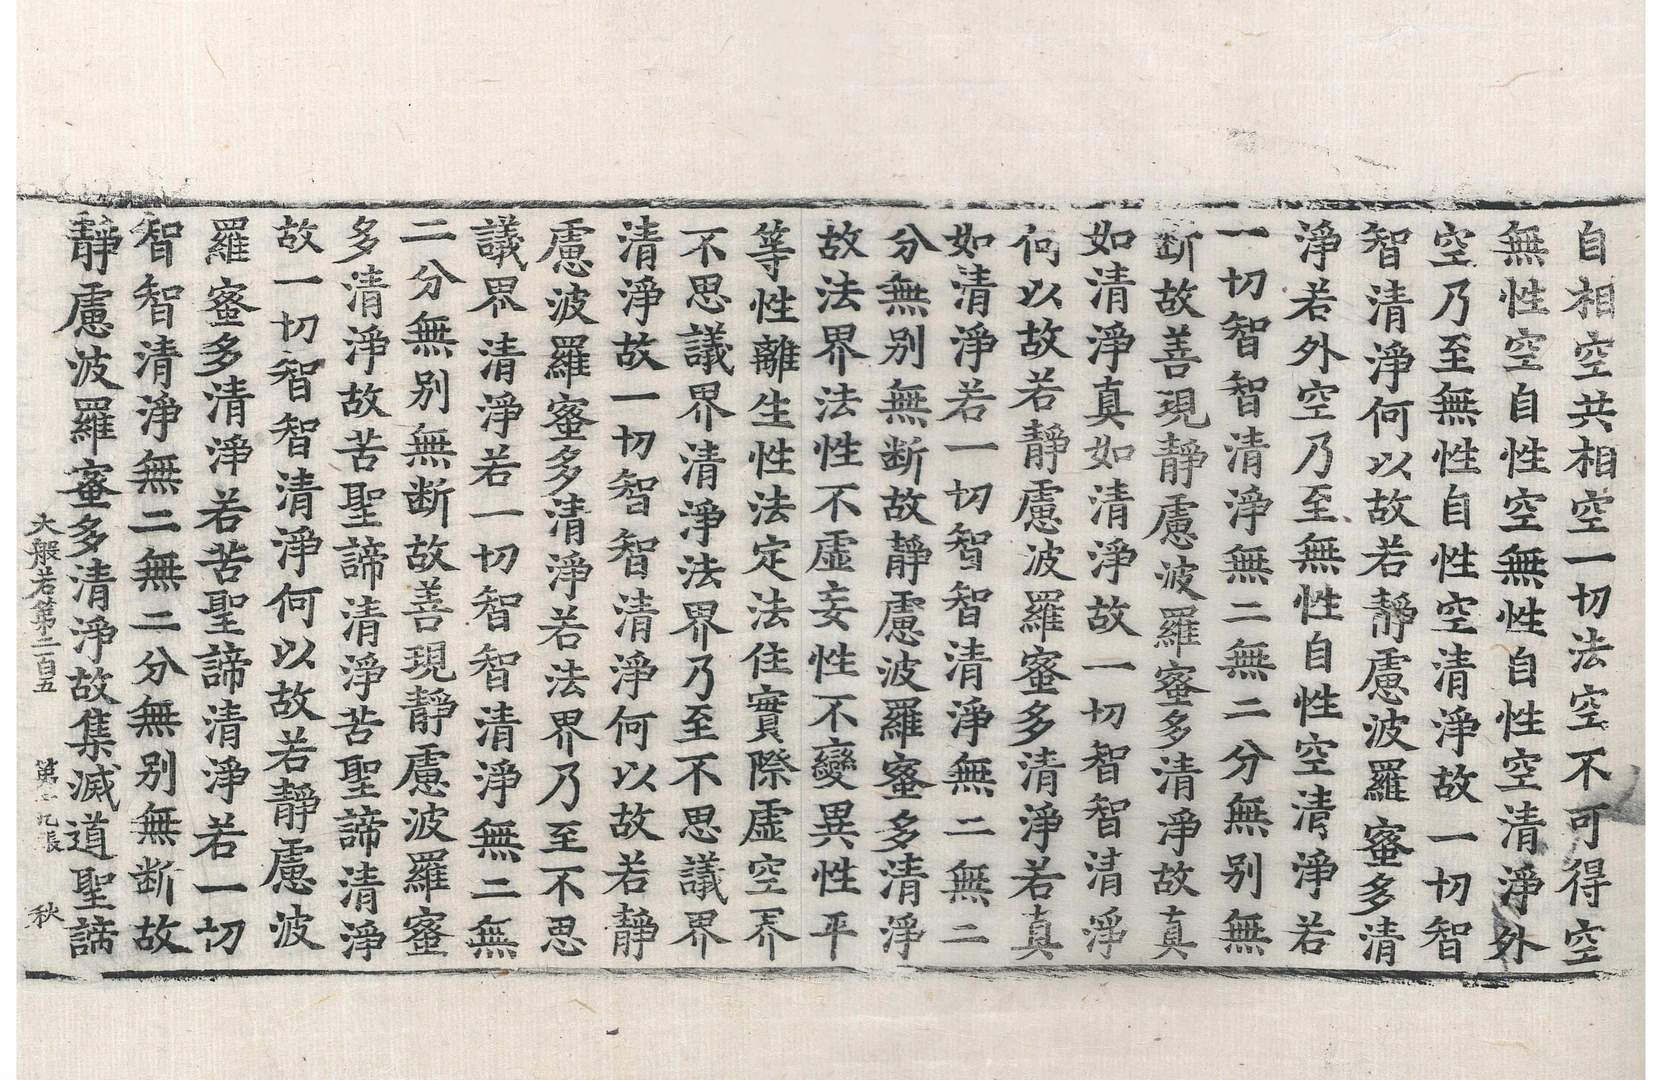 自相空共相空一切法空不可得空
無性空自性空無性自性空清淨外
空乃至無性自性空清淨故一切智
智清淨何以故若靜慮波羅蜜多清
淨若外空乃至無性自性空清淨若
一切智智清淨無二無二分無別無
斷故善現靜慮波羅蜜多清淨故真
如清淨真如清淨故一切智智清淨
何以故若靜慮波羅蜜多清淨若真
如清淨若一切智智清淨無二無二
分無別無斷故靜慮波羅蜜多清淨
故法界法性不虛妄性不變異性平
等性離生性法定法住實際虛空界
不思議界清淨法界乃至不思議界
清淨故一切智智清淨何以故若靜
慮波羅蜜多清淨若法界乃至不思
議界清淨若一切智智清淨無二無
二分無別無斷故善現靜慮波羅蜜
多清淨故苦聖諦清淨苦聖諦清淨
故一切智智清淨何以故若靜慮波
羅蜜多清淨若苦聖諦清淨若一切
智智清淨無二無二分無別無斷故
靜慮波羅蜜多清淨故集滅道聖諦
大般若第二百五 第十九張 秋